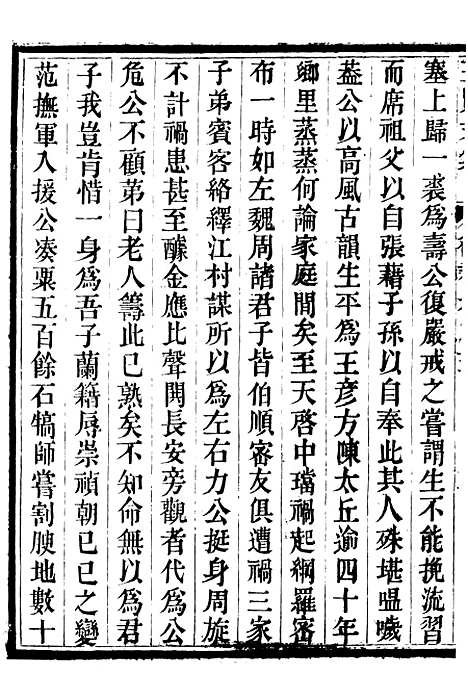 塞上歸一裘為壽公復嚴戒之嘗謂生不能挽流習
而席祖父以自張藉子孫以自奉此其人殊堪嗢噦
葢公以高風古韻生平為王彥方陳太丘逾四十年
鄉里蒸蒸何論家庭間矣至天啓中璫禍起綱羅密
布一時如左魏周諸君子皆伯順密友俱遭禍三家
子弟賓客絡繹江村謀所以為左右力公挺身周旋
不計禍患甚至醵金應比聲聞長安旁觀者代為公
危公不顧第曰老人籌此已熟矣不知命無以為君
子我豈肯惜一身為吾子蘭籍辱崇禎朝己巳之變
范撫軍入援公湊粟五百餘石犒師嘗割腴地數十